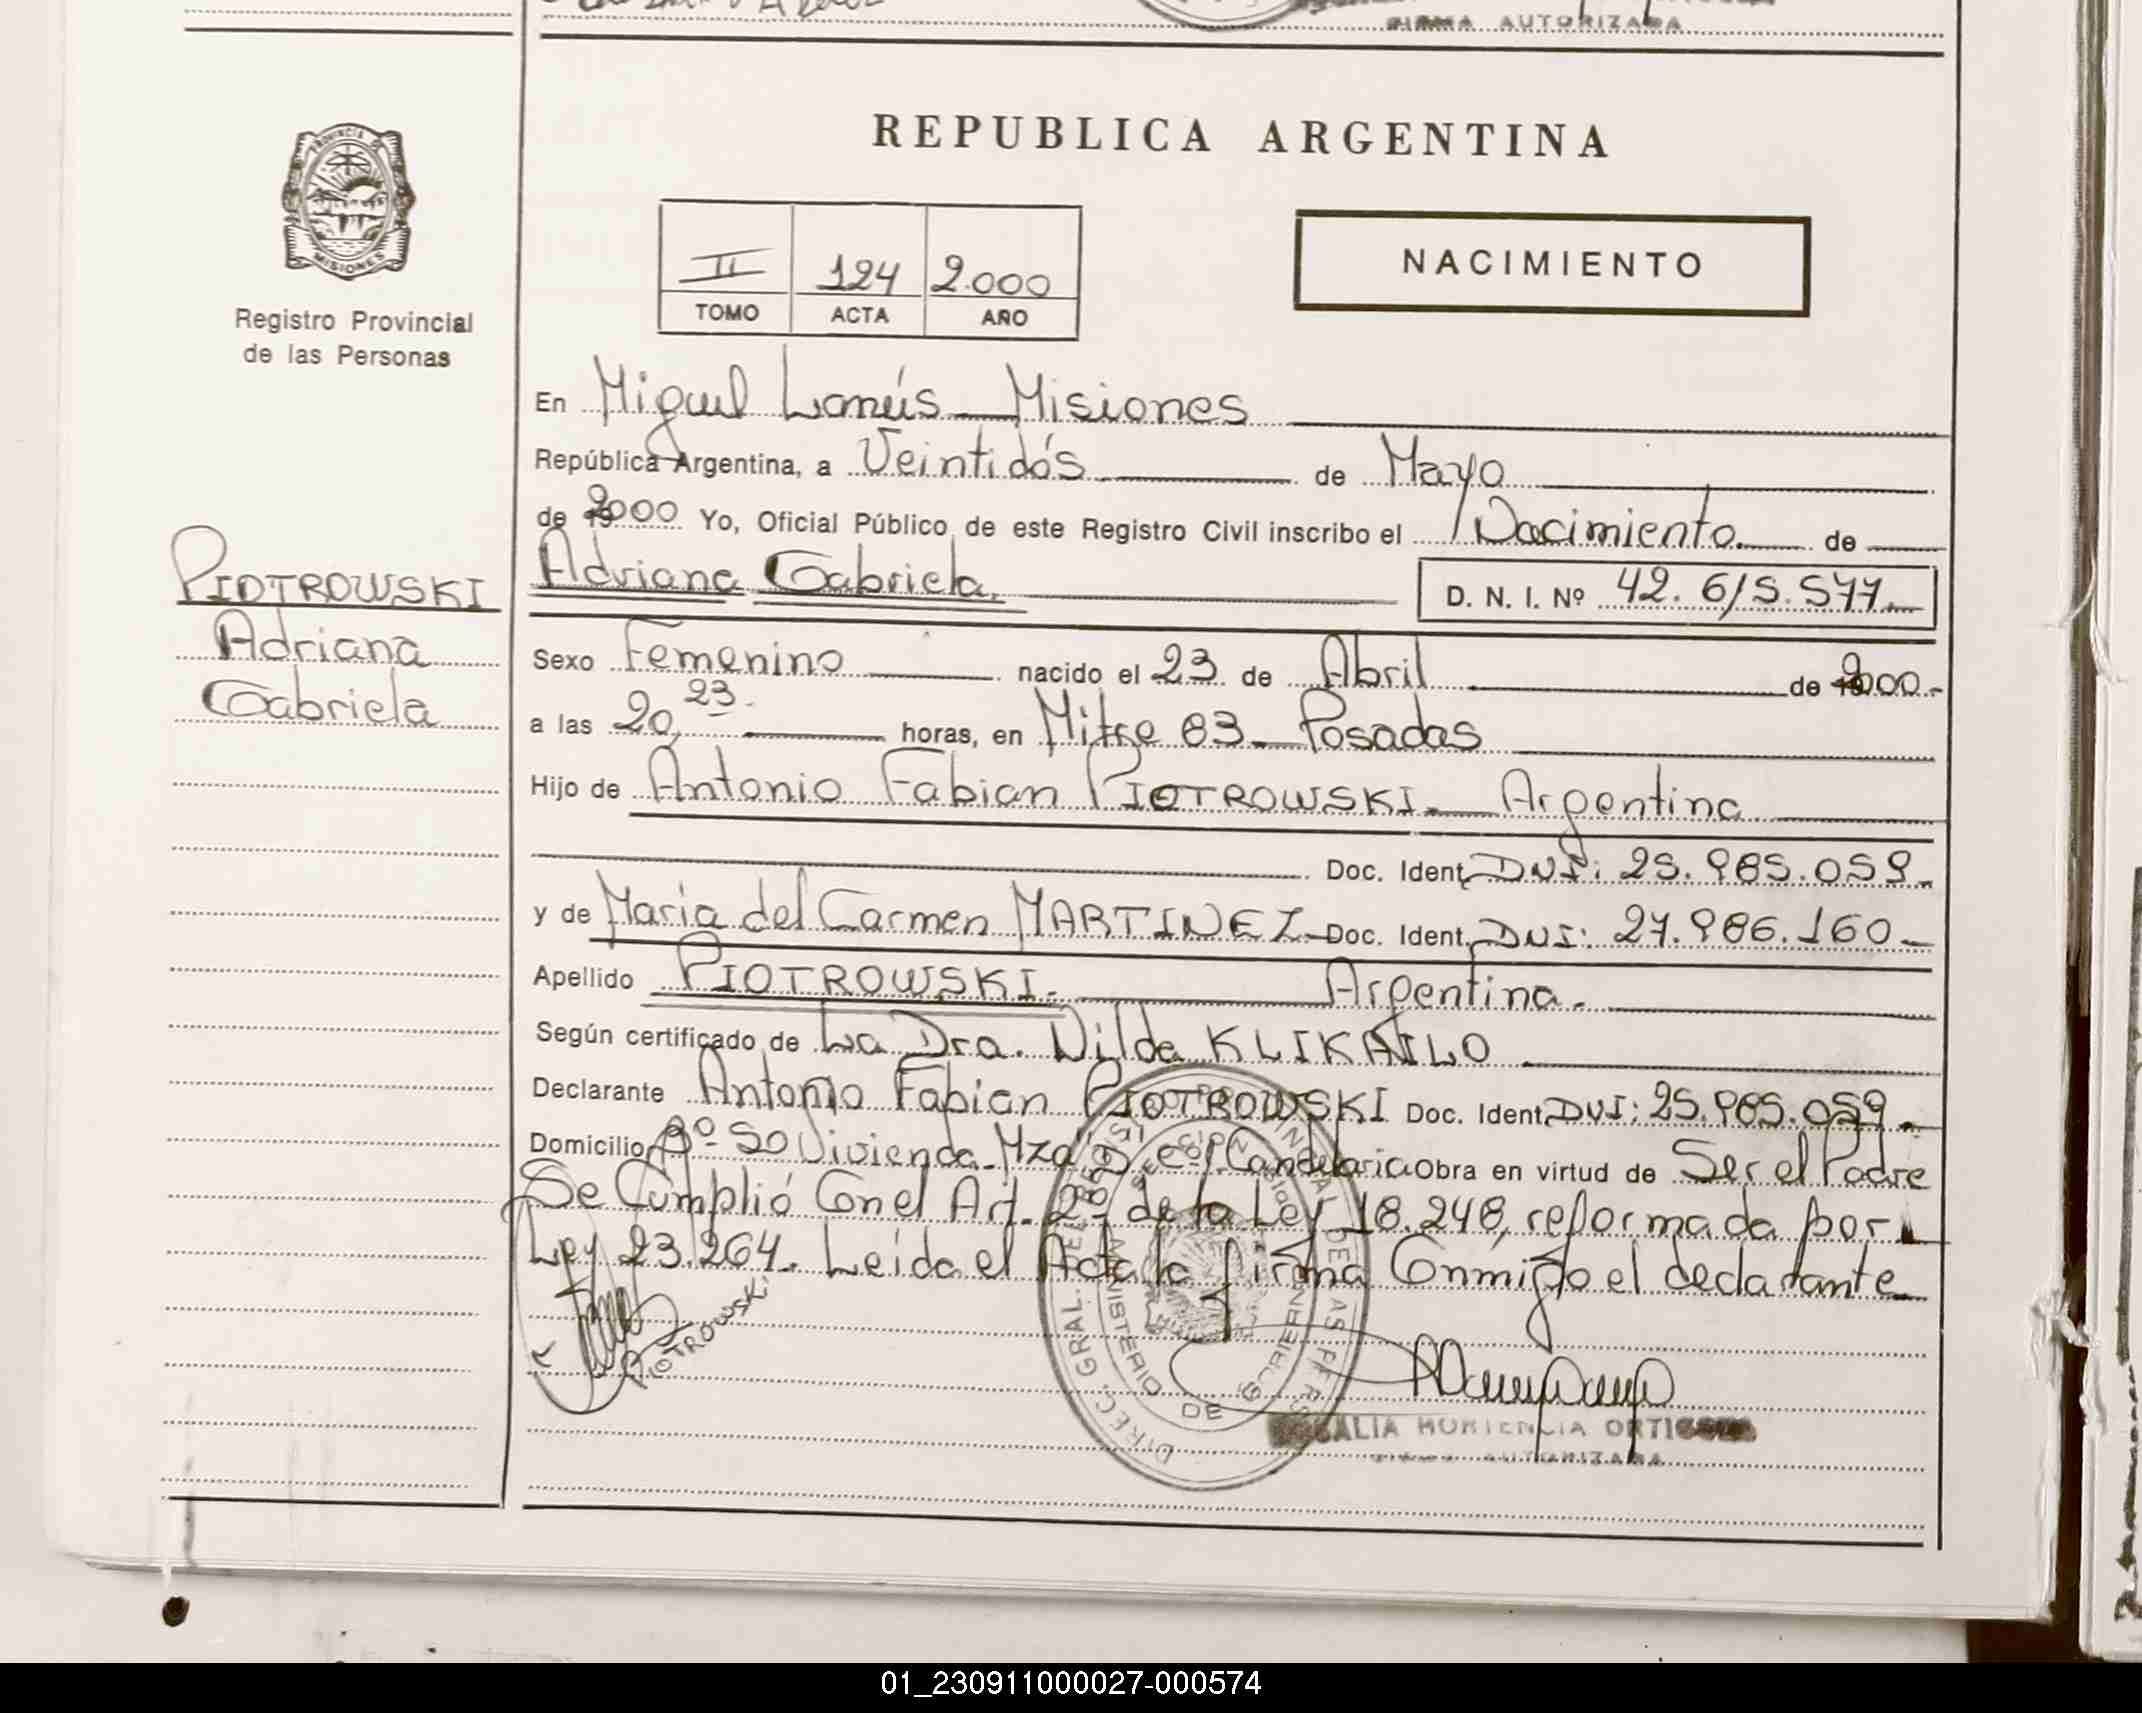 FIRMA AUTORIZADA
REPUBLICA ARGENTINA
PROVINCIA
MISIONES
Registro Provincial
de las Personas
II 124 2.000
TOMO ACTA AÑO
NACIMIENTO
En Miguel Lanús — Misiones
República Argentina, a Veintidós de Mayo
de 2000 Yo, Oficial Público de este Registro Civil inscribo el Nacimiento. de
PIOTROWSKI
Adriana
Gabriela
Adriana Gabriela.
D. N. I. Nº 42.615.577.
Sexo Femenino nacido el 23 de Abril de 2000.-
a las 20,23. horas, en Mitre 83 — Posadas
Hijo de Antonio Fabian PIOTROWSKI — Argentina
Doc. Ident. DNI: 25.985.059.
y de Maria del Carmen MARTINEZ — Doc. Ident. DNI: 27.986.160 —
Apellido PIOTROWSKI. Argentina.
Según certificado de La Dra. Nilda KLIKAILO
Declarante Antonio Fabian PIOTROWSKI Doc. Ident. DNI: 25.985.059.
Domicilio Bº 50 Vivienda Mza D Candelaria Obra en virtud de Ser el Padre
Se Cumplió Con el Art. 2º de la Ley 18.248, reformada por
Ley 23.264. Leída el Acta la firma Conmigo el declarante
PIOTROWSKI
DIREC. GRAL. DEL REGISTRO PROVINCIAL DE LAS PERS.
MINISTERIO DE GOBIERNO
HORTENCIA
AUTORIZADA
01_230911000027-000574